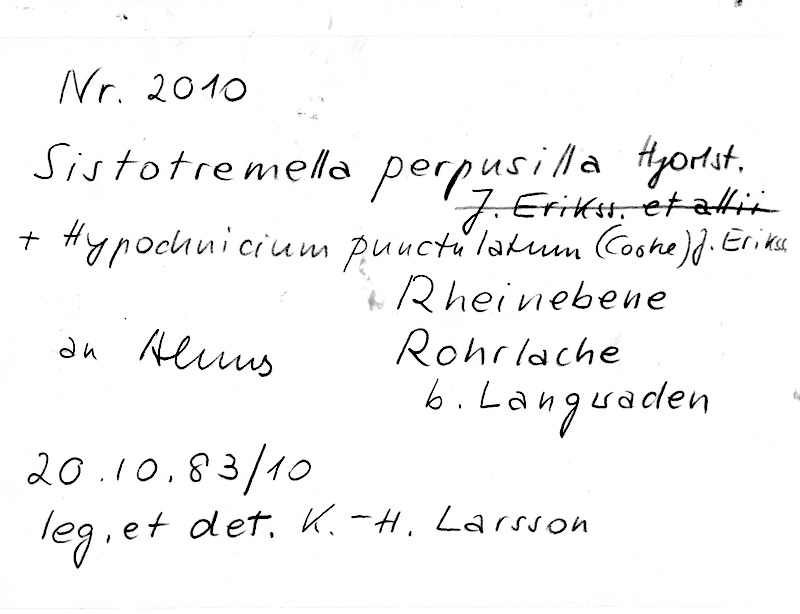 Nr. 2010
Sistotremella perpusilla Hjortst.
J. Erikss. et allii
+ Hypochnicium punctulatum (Cooke) J. Erikss
Rheinebene
an Alnus Rohrlache
b. Langwaden
20.10.83/10
leg. et det. K.-H. Larsson